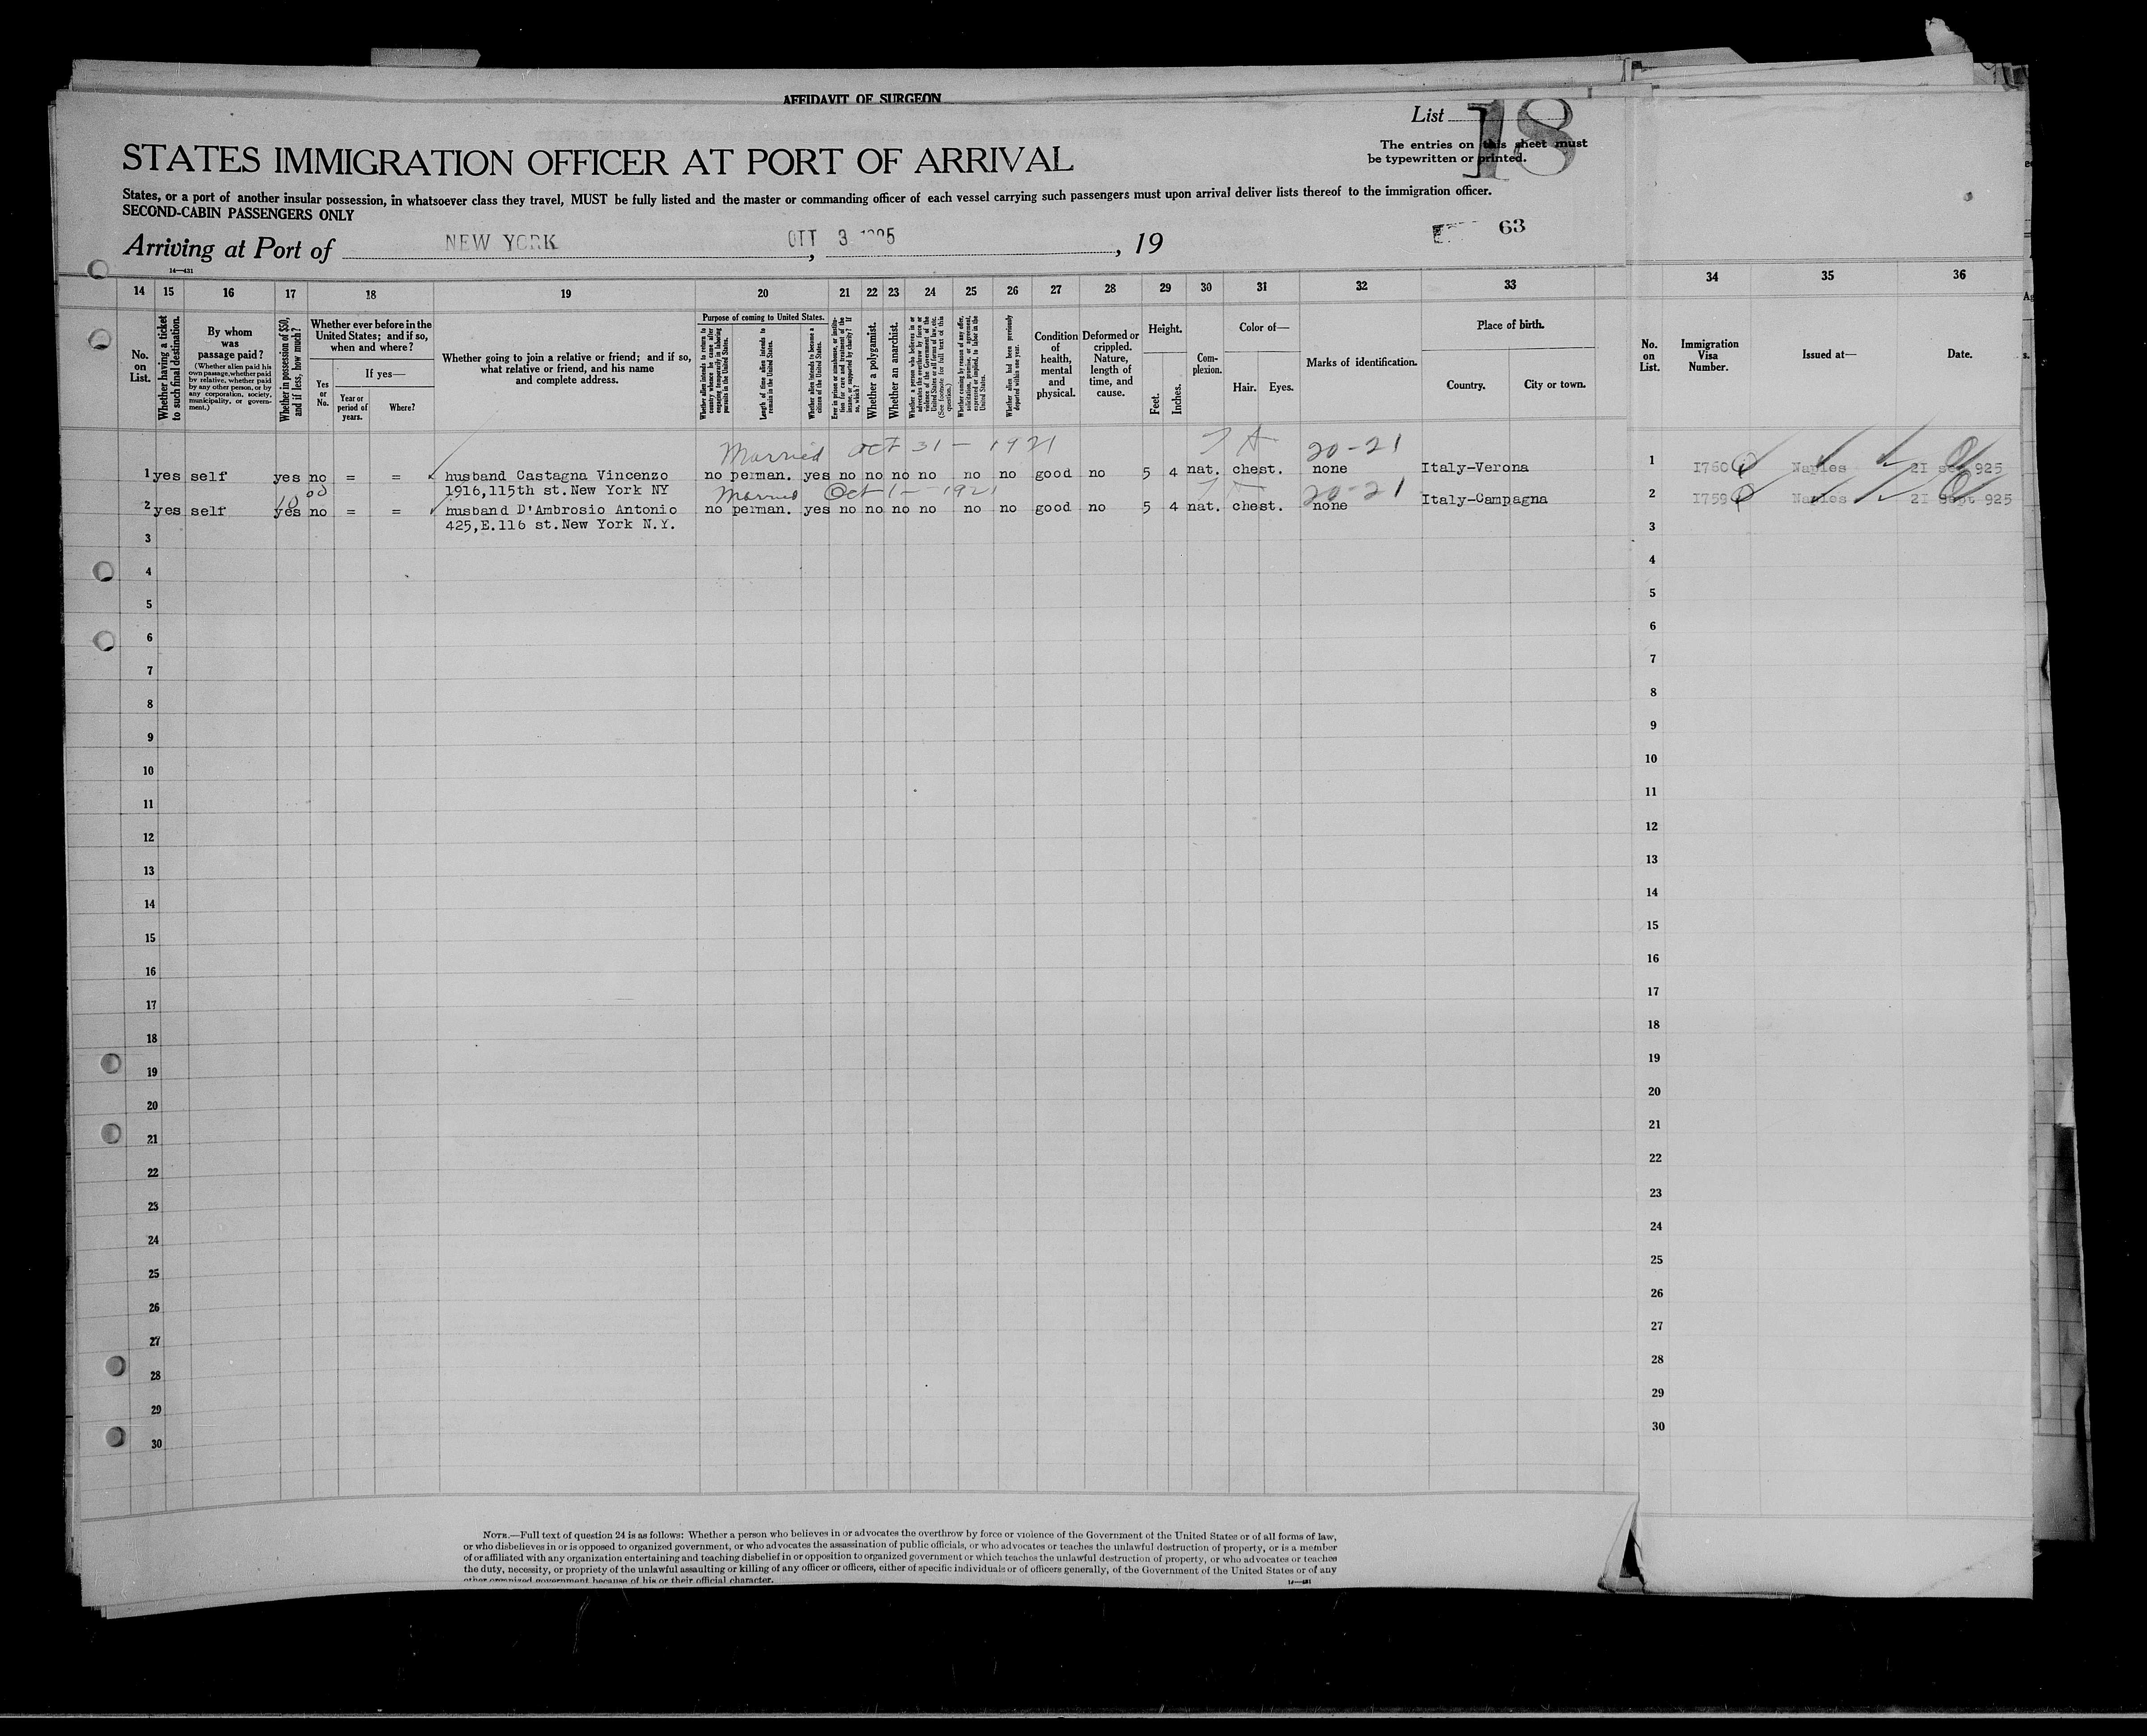 AFFIDAVIT OF SURGEON
List 18
STATES IMMIGRATION OFFICER AT PORT OF ARRIVAL
The entries on this sheet must
be typewritten or printed.
States, or a port of another insular possession, in whatsoever class they travel, MUST be fully listed and the master or commanding officer of each vessel carrying such passengers must upon arrival deliver lists thereof to the immigration officer.
SECOND-CABIN PASSENGERS ONLY
63
Arriving at Port of NEW YORK, OTT 3, 19
14—431
14 15 16 17 18 19 20 21 22 23 24 25 26 27 28 29 30 31 32 33 34 35 36
No. on List.
Whether having a ticket to such final destination.
By whom was passage paid?
(Whether alien paid his own passage, whether paid by relative, whether paid by any other person, or by any corporation, society, municipality, or government.)
Whether in possession of $50, and if less, how much?
Whether ever before in the United States; and if so, when and where?
Yes or No.
If yes—
Year or period of years.
Where?
Whether going to join a relative or friend; and if so, what relative or friend, and his name and complete address.
Purpose of coming to United States.
Whether alien intends to return to country whence he came after engaging temporarily in laboring pursuits in the United States.
Length of time alien intends to remain in the United States.
Whether alien intends to become a citizen of the United States.
Ever in prison or almshouse, or institution for care and treatment of the insane, or supported by charity? If so, which?
Whether a polygamist.
Whether an anarchist.
Whether a person who believes in or advocates the overthrow by force or violence of the Government of the United States or all forms of law, etc. (See footnote for full text of this question.)
Whether coming by reason of any offer, solicitation, promise, or agreement, expressed or implied, to labor in the United States.
Whether alien had been previously deported within one year.
Condition of health, mental and physical.
Deformed or crippled. Nature, length of time, and cause.
Height.
Feet. Inches.
Complexion.
Color of—
Hair. Eyes.
Marks of identification.
Place of birth.
Country. City or town.
No. on List.
Immigration Visa Number.
Issued at—
Date.
Married Oct 31 - 1921 20-21
1 yes self yes no = = husband Castagna Vincenzo no perman. yes no no no no no no good no 5 4 nat. chest. none Italy-Verona 1 I760 Naples 2I 925
1916,115th st.New York NY
Married Oct 1 - 1921 20-21
2 yes self yes no = = husband D'Ambrosio Antonio no perman. yes no no no no no no good no 5 4 nat. chest. none Italy-Campagna 2 I759 Naples 2I Sept 925
425,E.116 st.New York N.Y.
3 3
4 4
5 5
6 6
7 7
8 8
9 9
10 10
11 11
12 12
13 13
14 14
15 15
16 16
17 17
18 18
19 19
20 20
21 21
22 22
23 23
24 24
25 25
26 26
27 27
28 28
29 29
30 30
NOTE.—Full text of question 24 is as follows: Whether a person who believes in or advocates the overthrow by force or violence of the Government of the United States or of all forms of law,
or who disbelieves in or is opposed to organized government, or who advocates the assassination of public officials, or who advocates or teaches the unlawful destruction of property, or is a member
of or affiliated with any organization entertaining and teaching disbelief in or opposition to organized government or which teaches the unlawful destruction of property, or who advocates or teaches
the duty, necessity, or propriety of the unlawful assaulting or killing of any officer or officers, either of specific individuals or of officers generally, of the Government of the United States or of any
other organized government because of his or their official character.
14—431